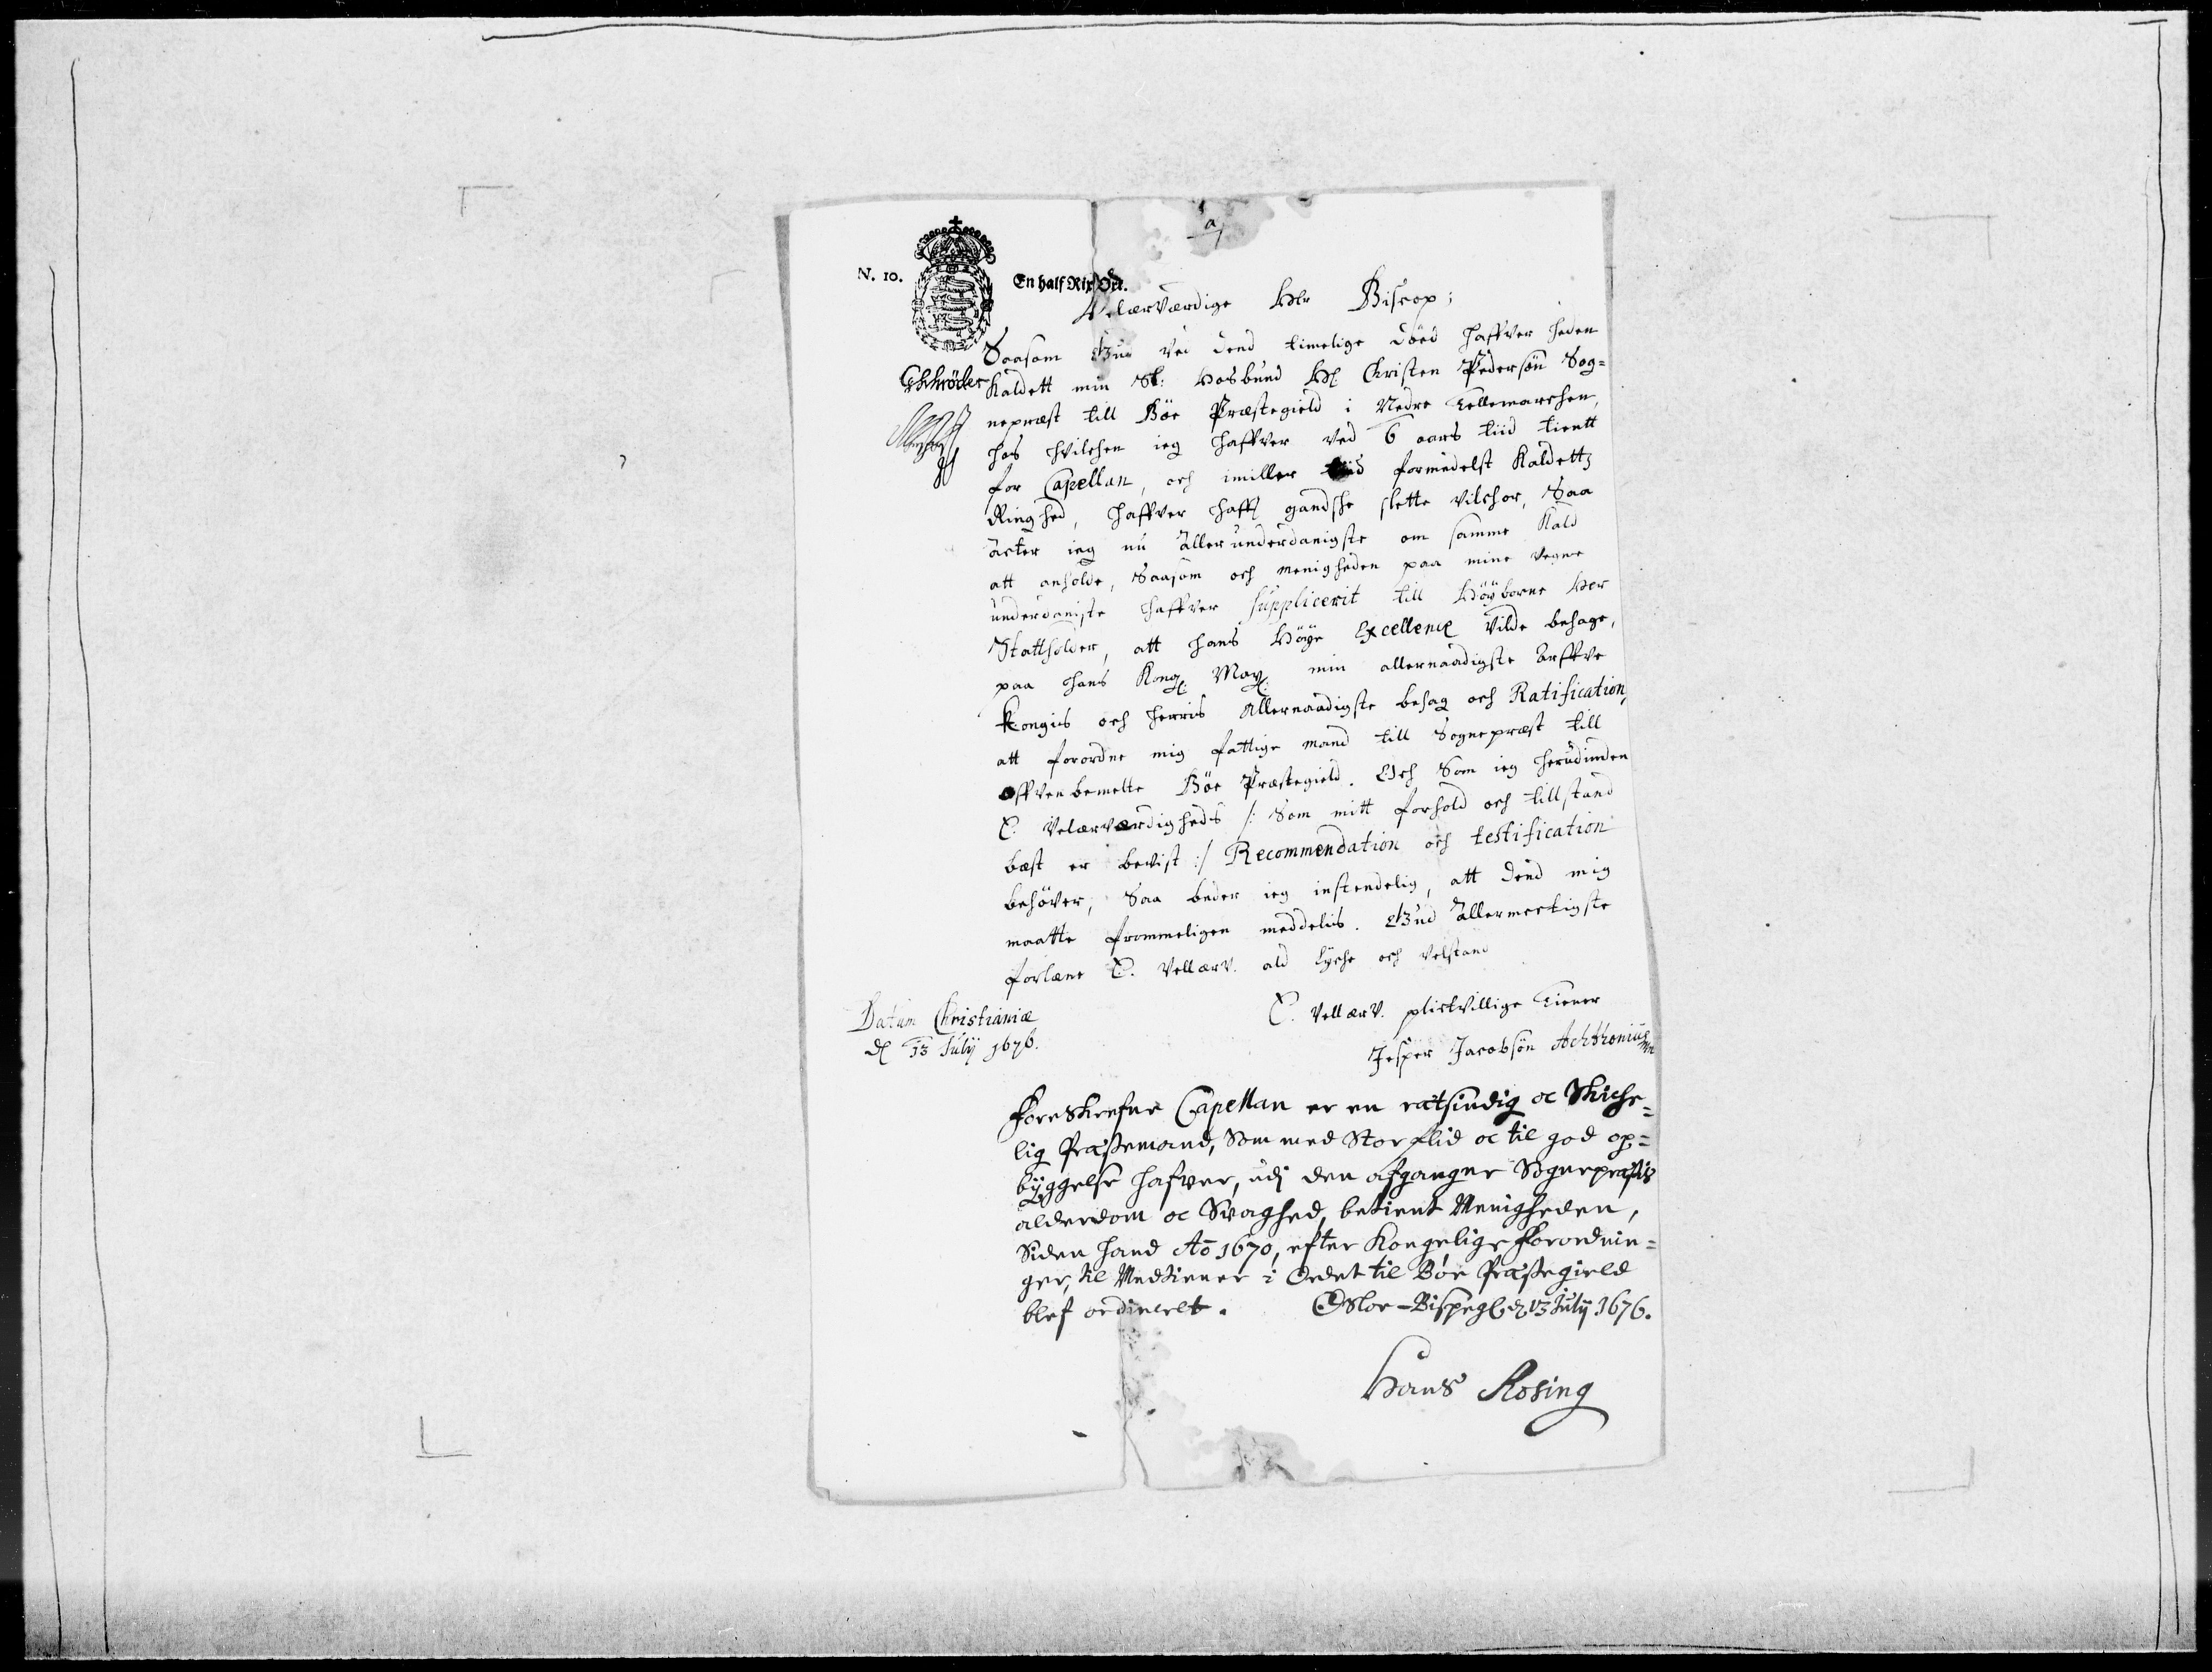 a
N. 10.
En half Rix Ort.
Velærværdige Hr Biscop;
Saasom Gud ved dend timelige död haffver heden
Kaldett min Sl: Hosbund Hr Christen Pedersön Sog=
nepræst till Böe Præstegield i Nedre Tellemarchen,
hos hvilchen ieg haffver ved 6 aars tiid tientt
for Capellan, och imiller tiid formedelst Kaldettz
Ringhed, haffver hafft gandsche slette vilchor, Saa
acter ieg nu allerunderdanigste om samme Kald
att anholde, Saasom och menigheden paa mine vegne
underdaniste haffver suppliceritt till Höÿborne Her
Stattholder, att hans Höÿe Excellence vilde behage,
paa hans Kong: May: min allernaadigste Arffve
Kongis och herris Allernaadigste behag och Ratification,
att forordne mig fattige mand till Sognepræst till
offvenbemelte Böe Præstegield. Och Som ieg herudinden
E. Velærværdigheds /: Som mitt forhold och tillstand
bæst er bevist :/ Recommendation och testification
behöver, Saa beder ieg instendelig, att dend mig
maatte frommeligen meddelis. Gud allermectigste
forlæne E. VellærV. ald lyche och velstand
E. VellærV. plictvillige Tiener
Jesper Jacobsön Achthonius
Datum Christianiæ
d 13 Julij 1676.
Foreskrefne Capellan er en rætsindig oc Skiche=
lig Præstemand, Som med Stor flid oc til god op=
byggelse hafver, udj den afgangne Sognepræstis
alderdom oc Svaghed, betient Menigheden,
Siden hand Ao 1670, efter Kongelige Forordnin=
ger, til Medtiener i Ordet til Böe Præstegield
blef ordineret. Osloe-Bispegd d 13 Julij 1676.
Hans Rosing